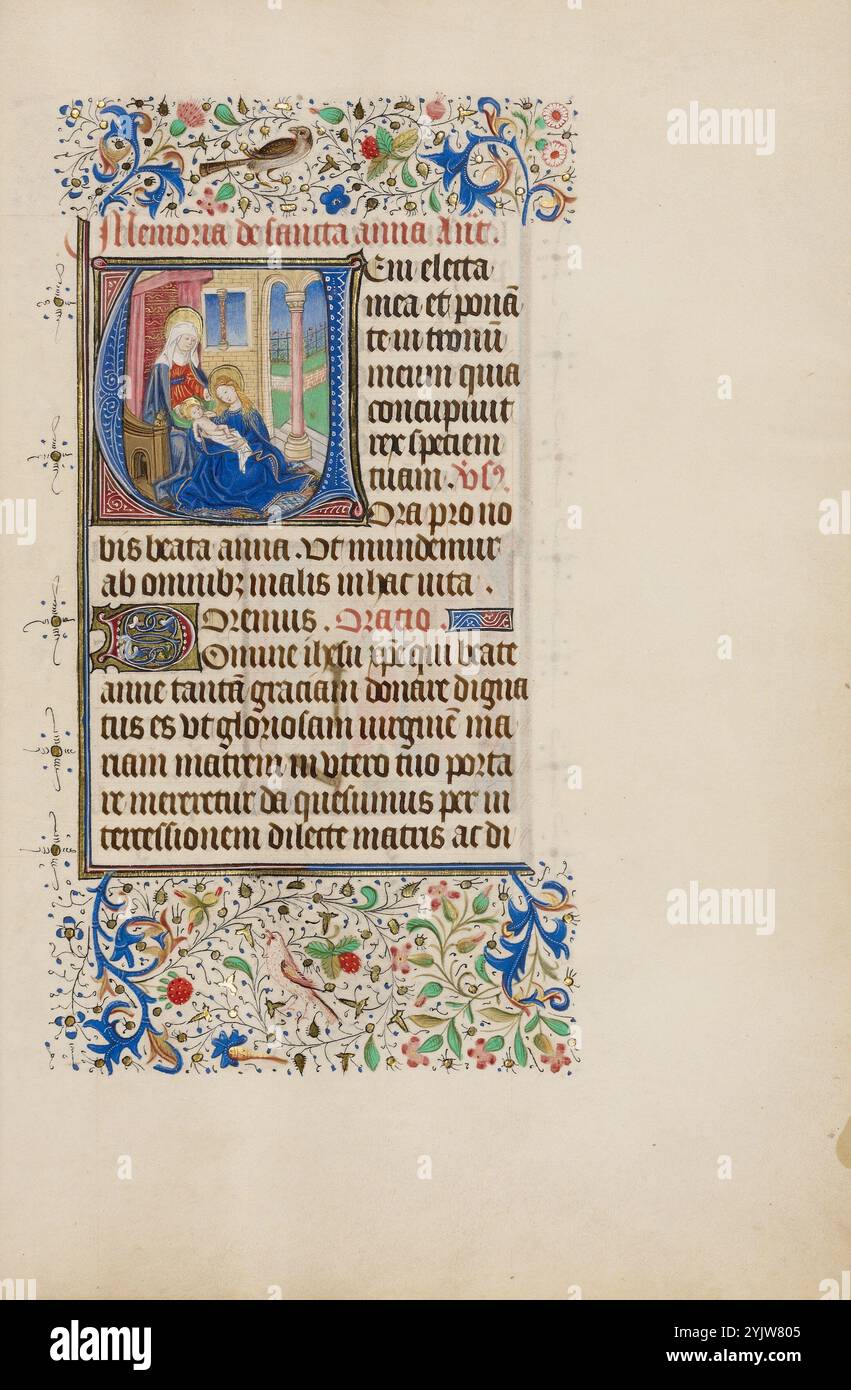 Memoria de sancta anna Añt.
Eni electa
mea et ponā
te in tronū
meum quia
concupiuit
rex speciem
tuam. Vs.
Ora pro no
bis beata anna. Ut mundemur
ab omnibꝫ malis in hac uita.
Oremus. Oratio.
Domine ihesu xpe qui beate
anne tantā graciam donare digna
tus es ut gloriosam uirginē ma
riam matrem in utero tuo porta
re mereretur da quesumus per in
tercessionem dilecte matris ac di
alamy
Image ID: 2YJW805
www.alamy.com